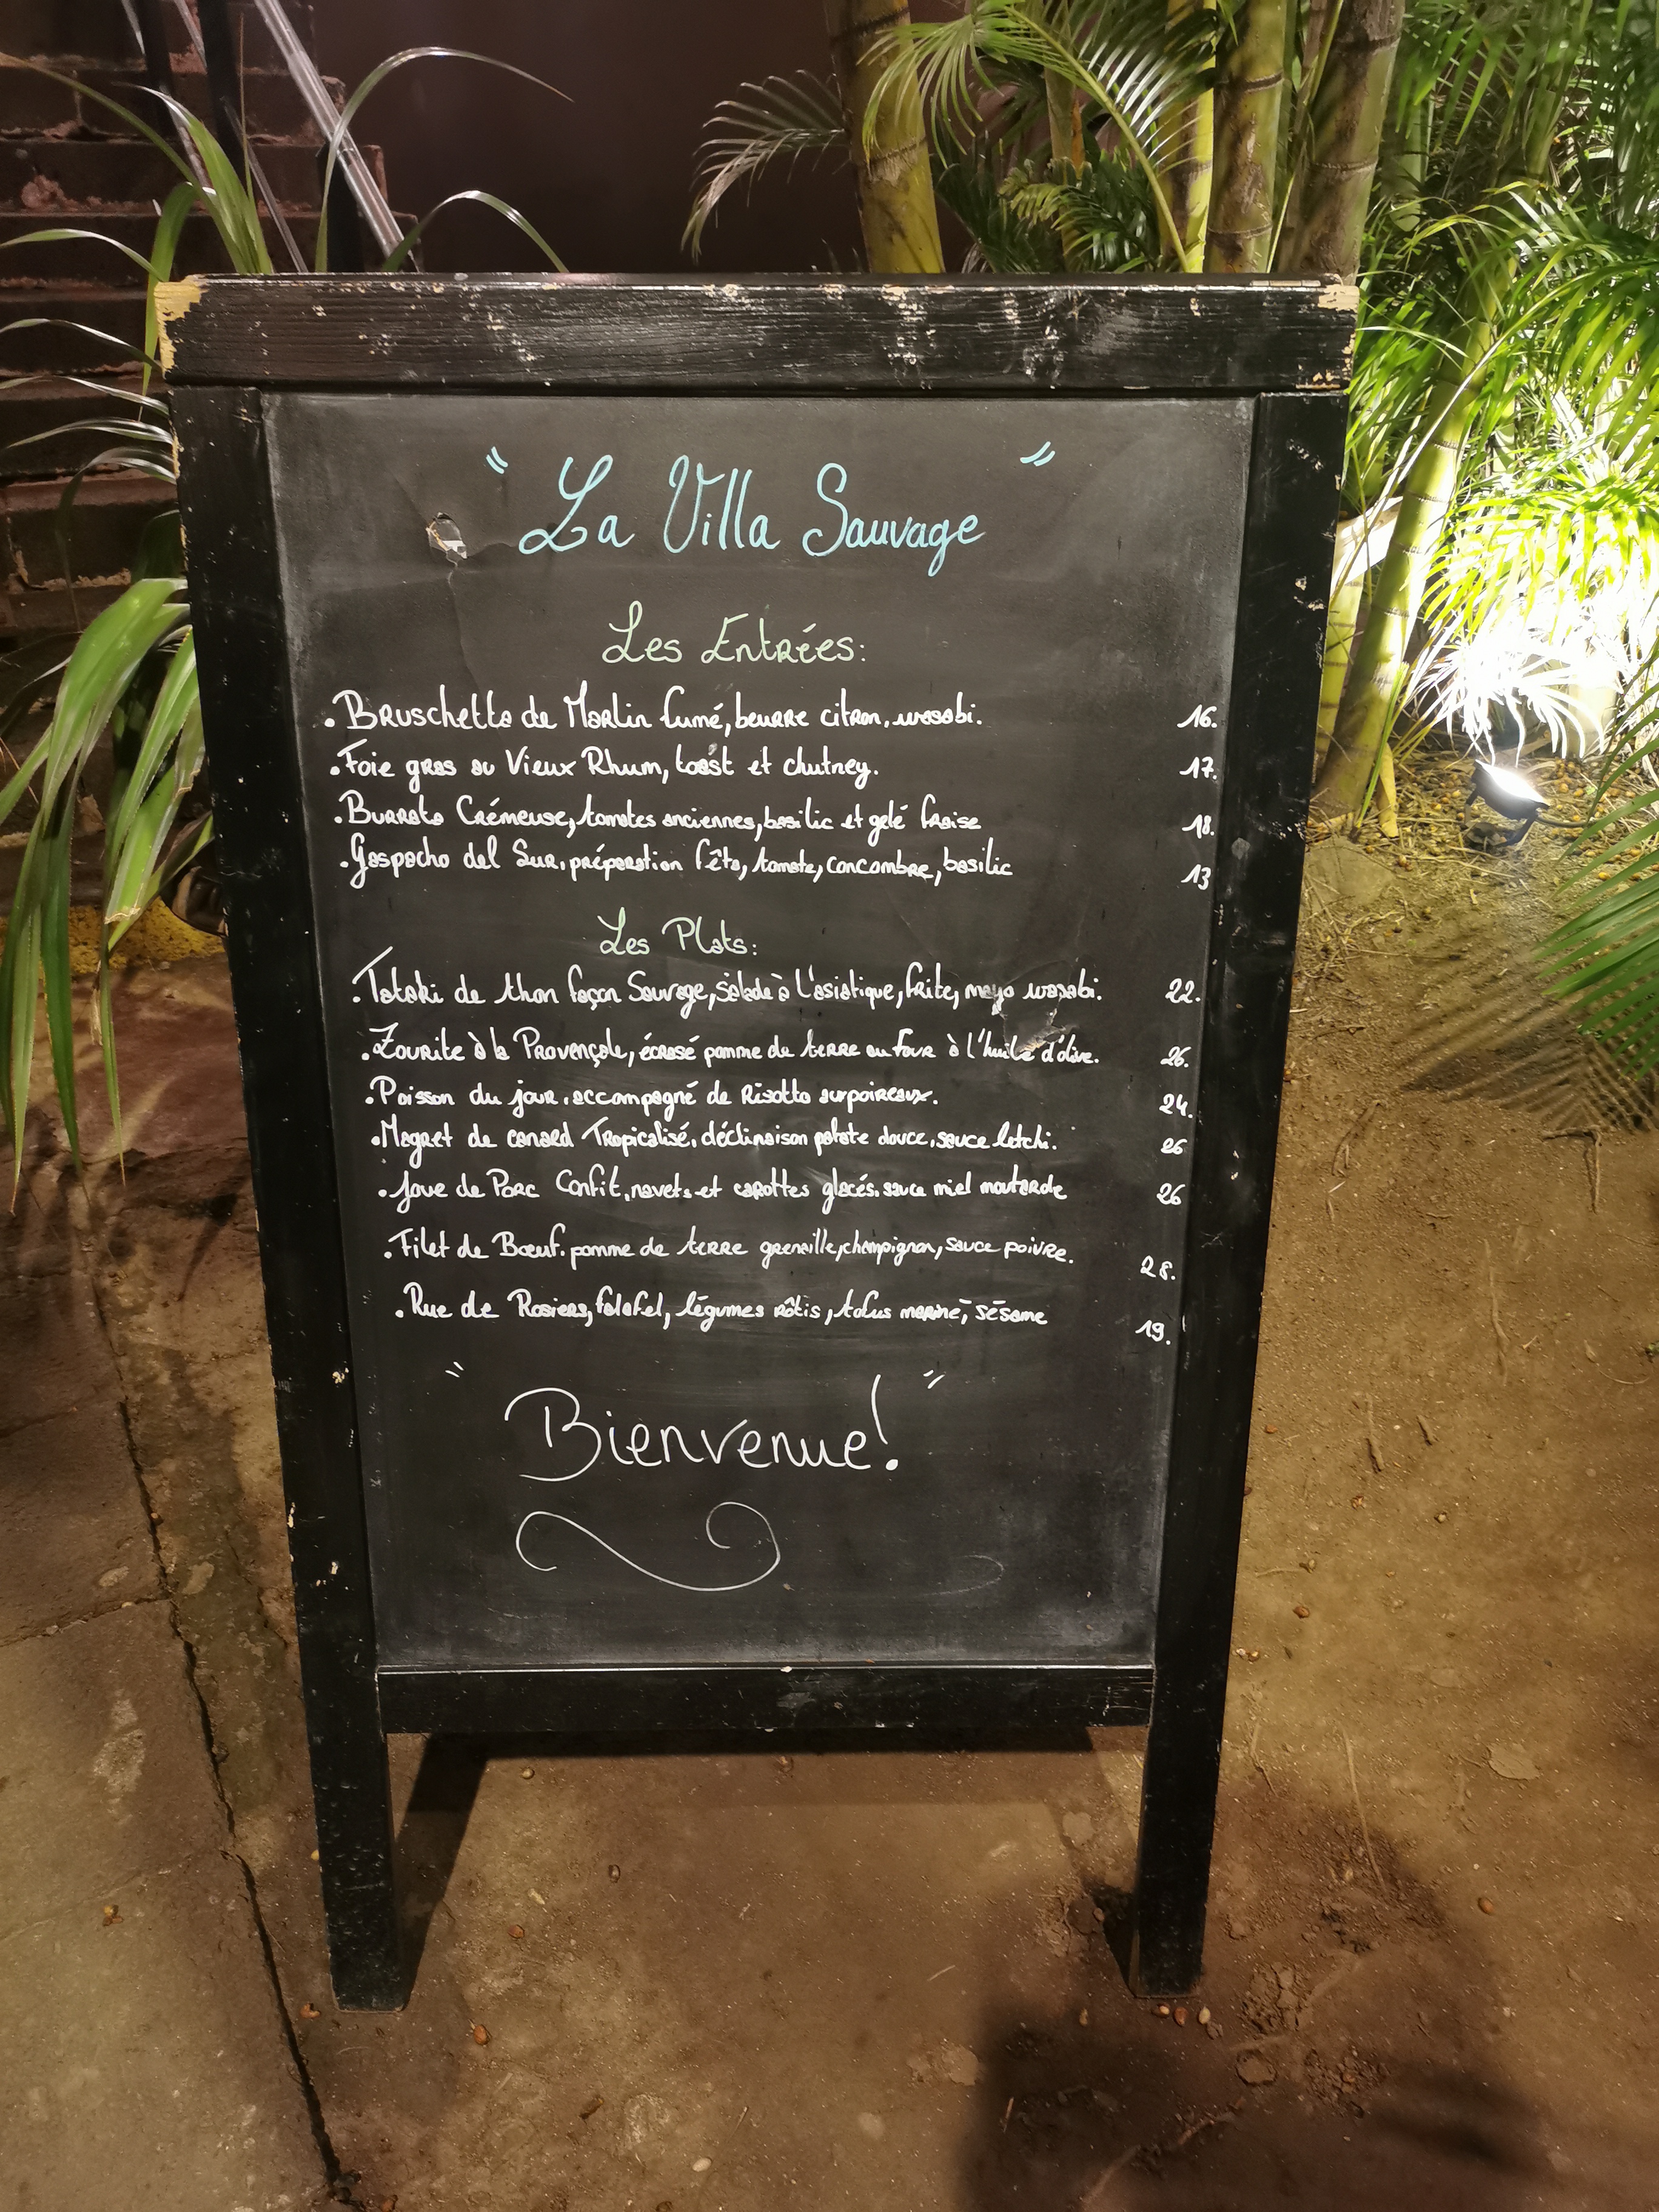 " La Villa Sauvage "
Les Entrées:
. Bruschetta de Marlin fumé, beurre citron, wasabi. 16.
. Foie gras au Vieux Rhum, toast et chutney. 17.
. Burrata Crémeuse, tomates anciennes, basilic et gelé fraise 18.
. Gaspacho del Sur, préparation fêta, tomate, concombre, basilic 13
Les Plats:
. Tataki de thon façon Sauvage, salade à l'asiatique, frite, mayo wasabi. 22.
. Zourite à la Provençale, écrasé pomme de terre au four à l'huile d'olive. 26.
. Poisson du jour, accompagné de Risotto aux poireaux. 24.
. Magret de canard Tropicalisé, déclinaison patate douce, sauce letchi. 26
. Joue de Porc Confit, navets et carottes glacés, sauce miel moutarde 26
. Filet de Bœuf. pomme de terre grenaille, champignon, sauce poivre. 28.
. Rue de Rosiers, falafel, légumes rôtis, tofus mariné, sésame 19.
" Bienvenue! "